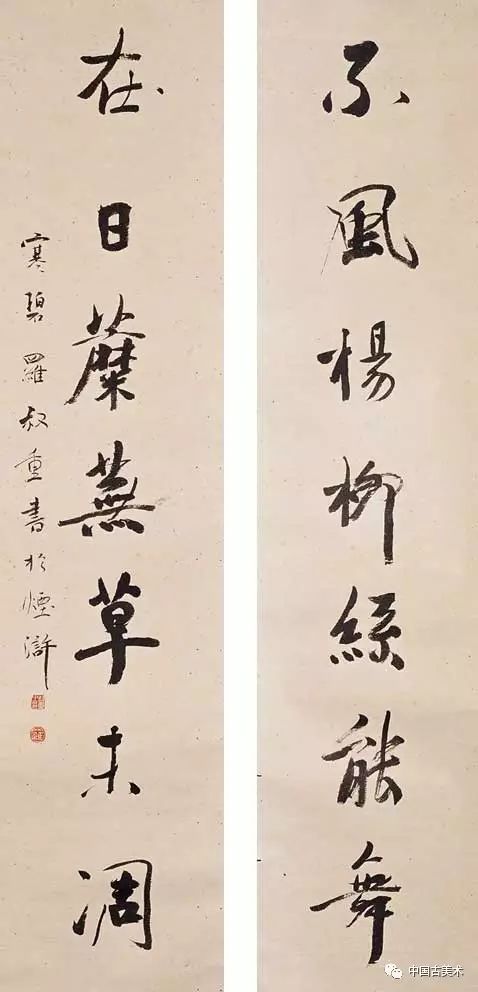 不風楊柳絲能舞
在日蘪蕪草未凋
寒碧羅叔重書於煙滸
中国古美术